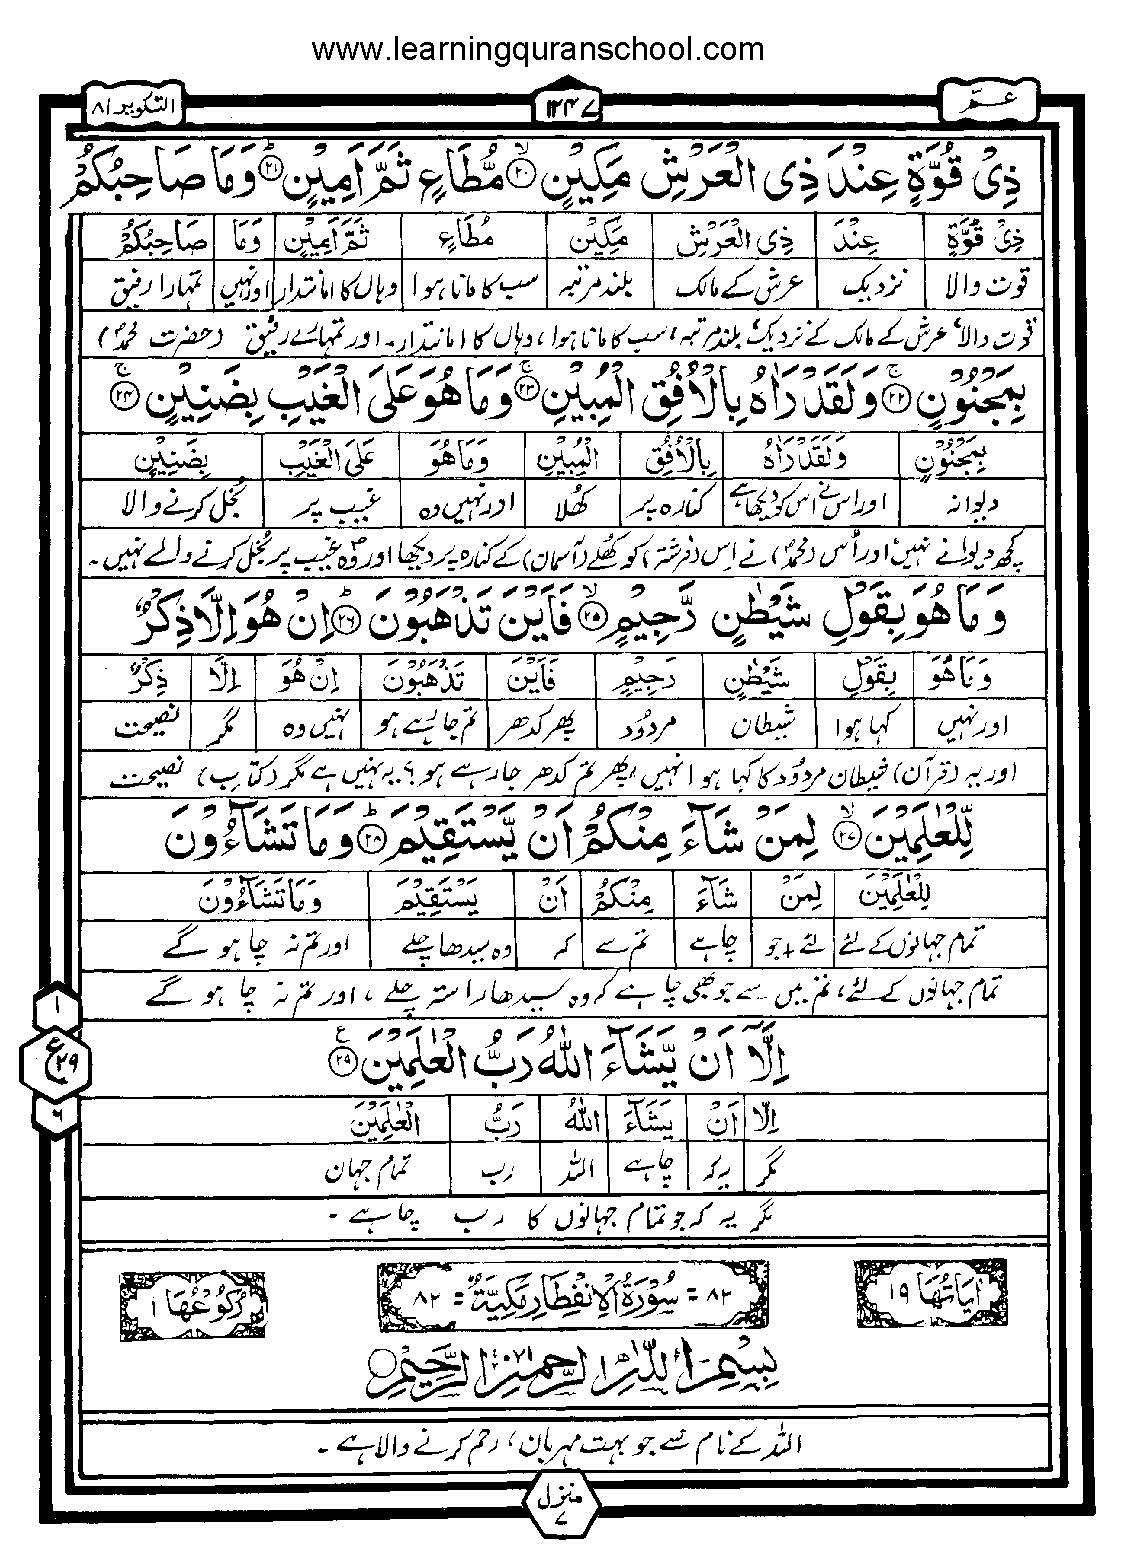 www.learningquranschool.com
عمّ
١٢٤٧
التكوير ٨١
ذِىْ قُوَّةٍ عِنْدَ ذِى الْعَرْشِ مَكِيْنٍۙ ﴿۲۰﴾ مُّطَاعٍ ثَمَّ اَمِيْنٍؕ ﴿۲۱﴾ وَمَا صَاحِبُكُمْ
ذِىْ قُوَّةٍ عِنْدَ ذِى الْعَرْشِ مَكِيْنٍ مُطَاعٍ ثَمَّ اَمِيْنٍ وَمَا صَاحِبُكُمْ
قوت والا نزدیک عرش کے مالک بلند مرتبہ سب کا مانا ہوا وہاں کا امانتدار اور نہیں تمہارا رفیق
قوت والا، عرش کے مالک کے نزدیک بلند مرتبہ، سب کا مانا ہوا، وہاں کا امانتدار۔ اور تمہارے رفیق (حضرت محمدؐ)
بِمَجْنُوْنٍۚ ﴿۲۲﴾ وَلَقَدْ رَاٰهُ بِالْاُفُقِ الْمُبِيْنِۚ ﴿۲۳﴾ وَمَا هُوَ عَلَى الْغَيْبِ بِضَنِيْنٍۚ ﴿۲۴﴾
بِمَجْنُوْنٍ وَلَقَدْ رَاٰهُ بِالْاُفُقِ الْمُبِيْنِ وَمَا هُوَ عَلَى الْغَيْبِ بِضَنِيْنٍ
دیوانہ اور اس نے اس کو دیکھا ہے کنارہ پر کھلا اور نہیں وہ غیب پر بخل کرنے والا
کچھ دیوانے نہیں، اور اُس (محمدؐ) نے اس (فرشتہ) کو کھلے (آسمان) کے کنارہ پر دیکھا اور وہ غیب پر بخل کرنے والے نہیں۔
وَمَا هُوَ بِقَوْلِ شَيْطٰنٍ رَّجِيْمٍۙ ﴿۲۵﴾ فَاَيْنَ تَذْهَبُوْنَؕ ﴿۲۶﴾ اِنْ هُوَ اِلَّا ذِكْرٌ
وَمَا هُوَ بِقَوْلِ شَيْطٰنٍ رَجِيْمٍ فَاَيْنَ تَذْهَبُوْنَ اِنْ هُوَ اِلَّا ذِكْرٌ
اور نہیں کہا ہوا شیطان مردود پھر کدھر تم جا رہے ہو نہیں وہ مگر نصیحت
اور یہ (قرآن) شیطان مردود کا کہا ہوا نہیں پھر تم کدھر جا رہے ہو؟ یہ نہیں ہے مگر (کتاب) نصیحت
لِّلْعٰلَمِيْنَۙ ﴿۲۷﴾ لِمَنْ شَآءَ مِنْكُمْ اَنْ يَّسْتَقِيْمَؕ ﴿۲۸﴾ وَمَا تَشَآءُوْنَ
لِلْعٰلَمِيْنَ لِمَنْ شَآءَ مِنْكُمْ اَنْ يَسْتَقِيْمَ وَمَا تَشَآءُوْنَ
تمام جہانوں کے لئے لئے + جو چاہے تم سے کہ وہ سیدھا چلے اور تم نہ چاہو گے
تمام جہانوں کے لئے، تم میں سے جو بھی چاہے کہ وہ سیدھا راستہ چلے، اور تم نہ چاہو گے
اِلَّآ اَنْ يَّشَآءَ اللّٰهُ رَبُّ الْعٰلَمِيْنَ ﴿۲۹﴾ ع
١
ع ٢٩
٦
اِلَّا اَنْ يَشَآءَ اللّٰهُ رَبُّ الْعٰلَمِيْنَ
مگر یہ کہ چاہے اللہ رب تمام جہان
مگر یہ کہ جو تمام جہانوں کا رب چاہے۔
اٰيَاتُهَا ١٩
٨٢ = سُوْرَةُ الْاِنْفِطَارِ مَكِّيَّةٌ = ٨٢
رُكُوْعُهَا ١
بِسْمِ اللّٰهِ الرَّحْمٰنِ الرَّحِيْمِ
اللہ کے نام سے جو بہت مہربان، رحم کرنے والا ہے۔
منزل ٧